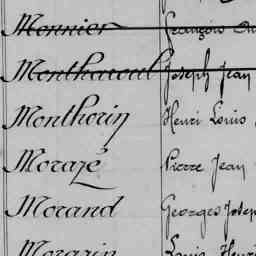 Monnier François
Joseph Jean
Monthorin Henri Louis
Morazé Pierre Jean
Morand Georges Joseph
Morazin Louis Henri